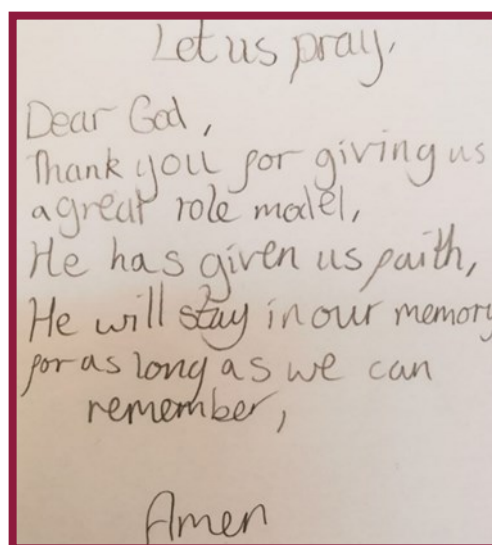 Let us pray,
Dear God,
Thank you for giving us
a great role model,
He has given us faith,
He will stay in our memory
for as long as we can
remember,
Amen